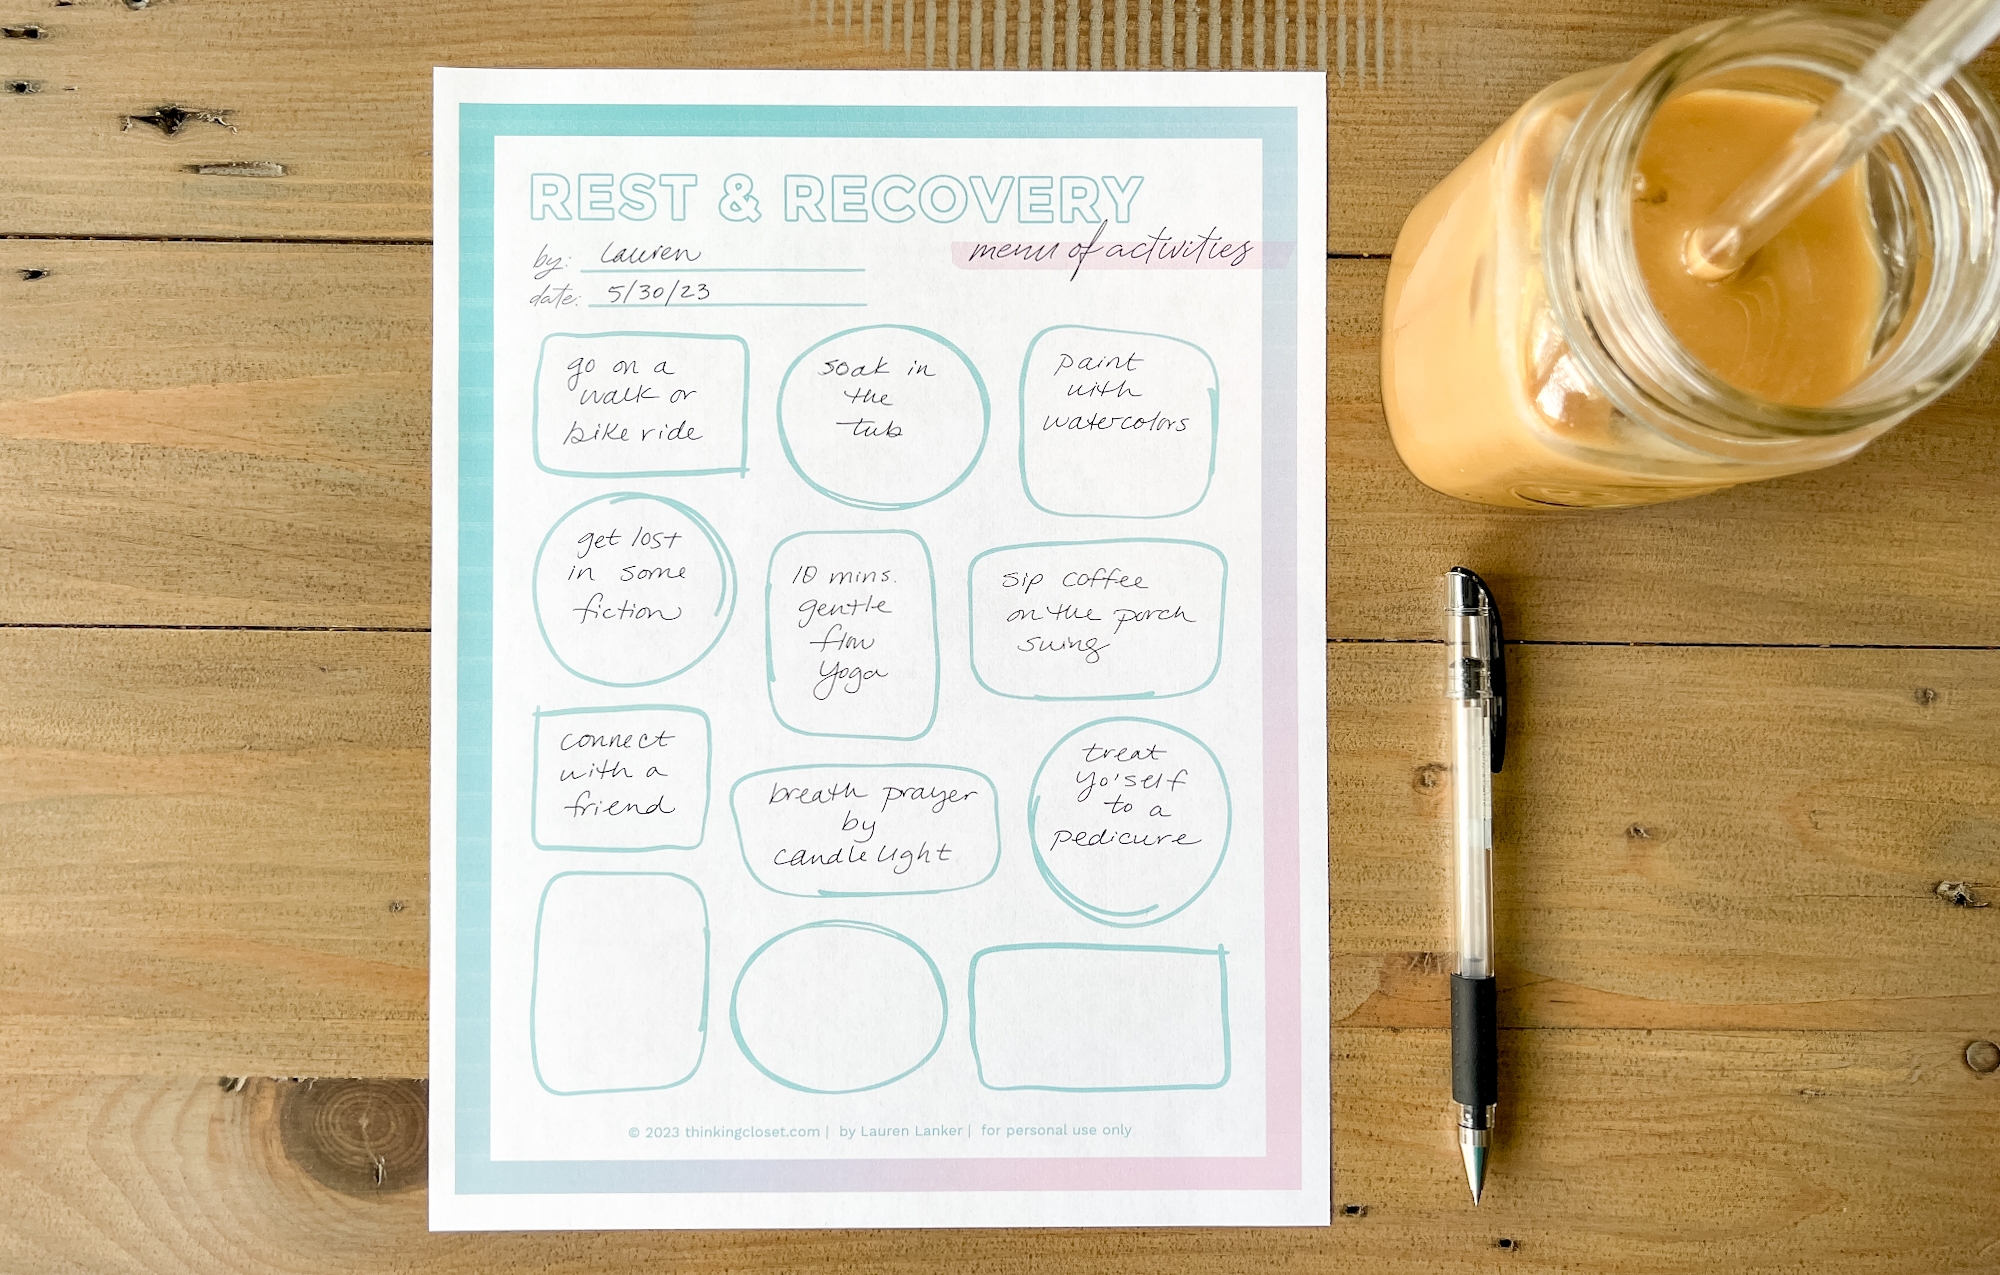 REST & RECOVERY
menu of activities
by: Lauren
date: 5/30/23
go on a
walk or
bike ride
soak in
the
tub
paint
with
watercolors
get lost
in some
fiction
10 mins.
gentle
flow
yoga
sip coffee
on the porch
swing
connect
with a
friend
breath prayer
by
candlelight
treat
yo'self
to a
pedicure
© 2023 thinkingcloset.com | by Lauren Lanker | for personal use only